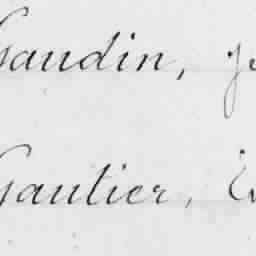 Gaudin,
Gautier,